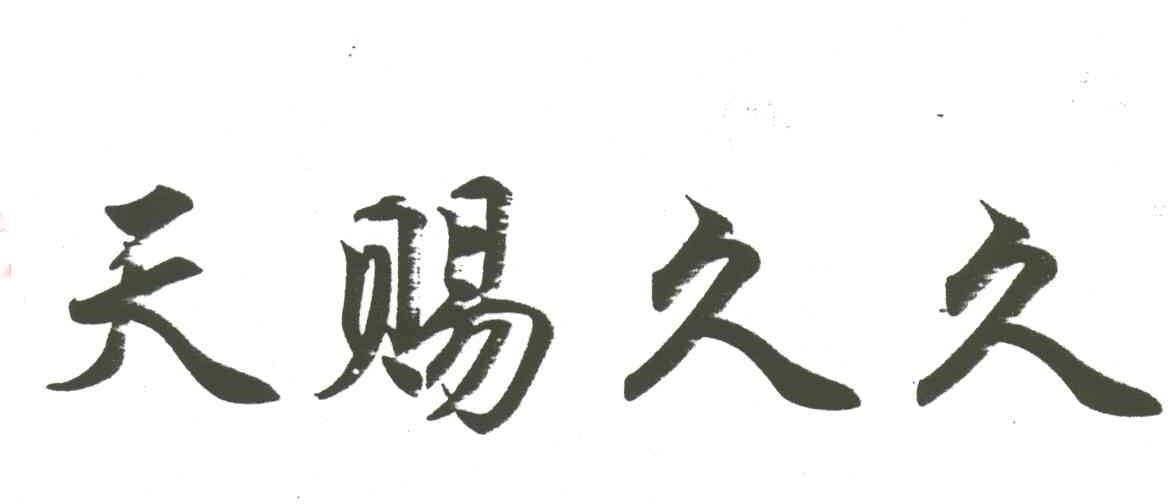 天赐久久